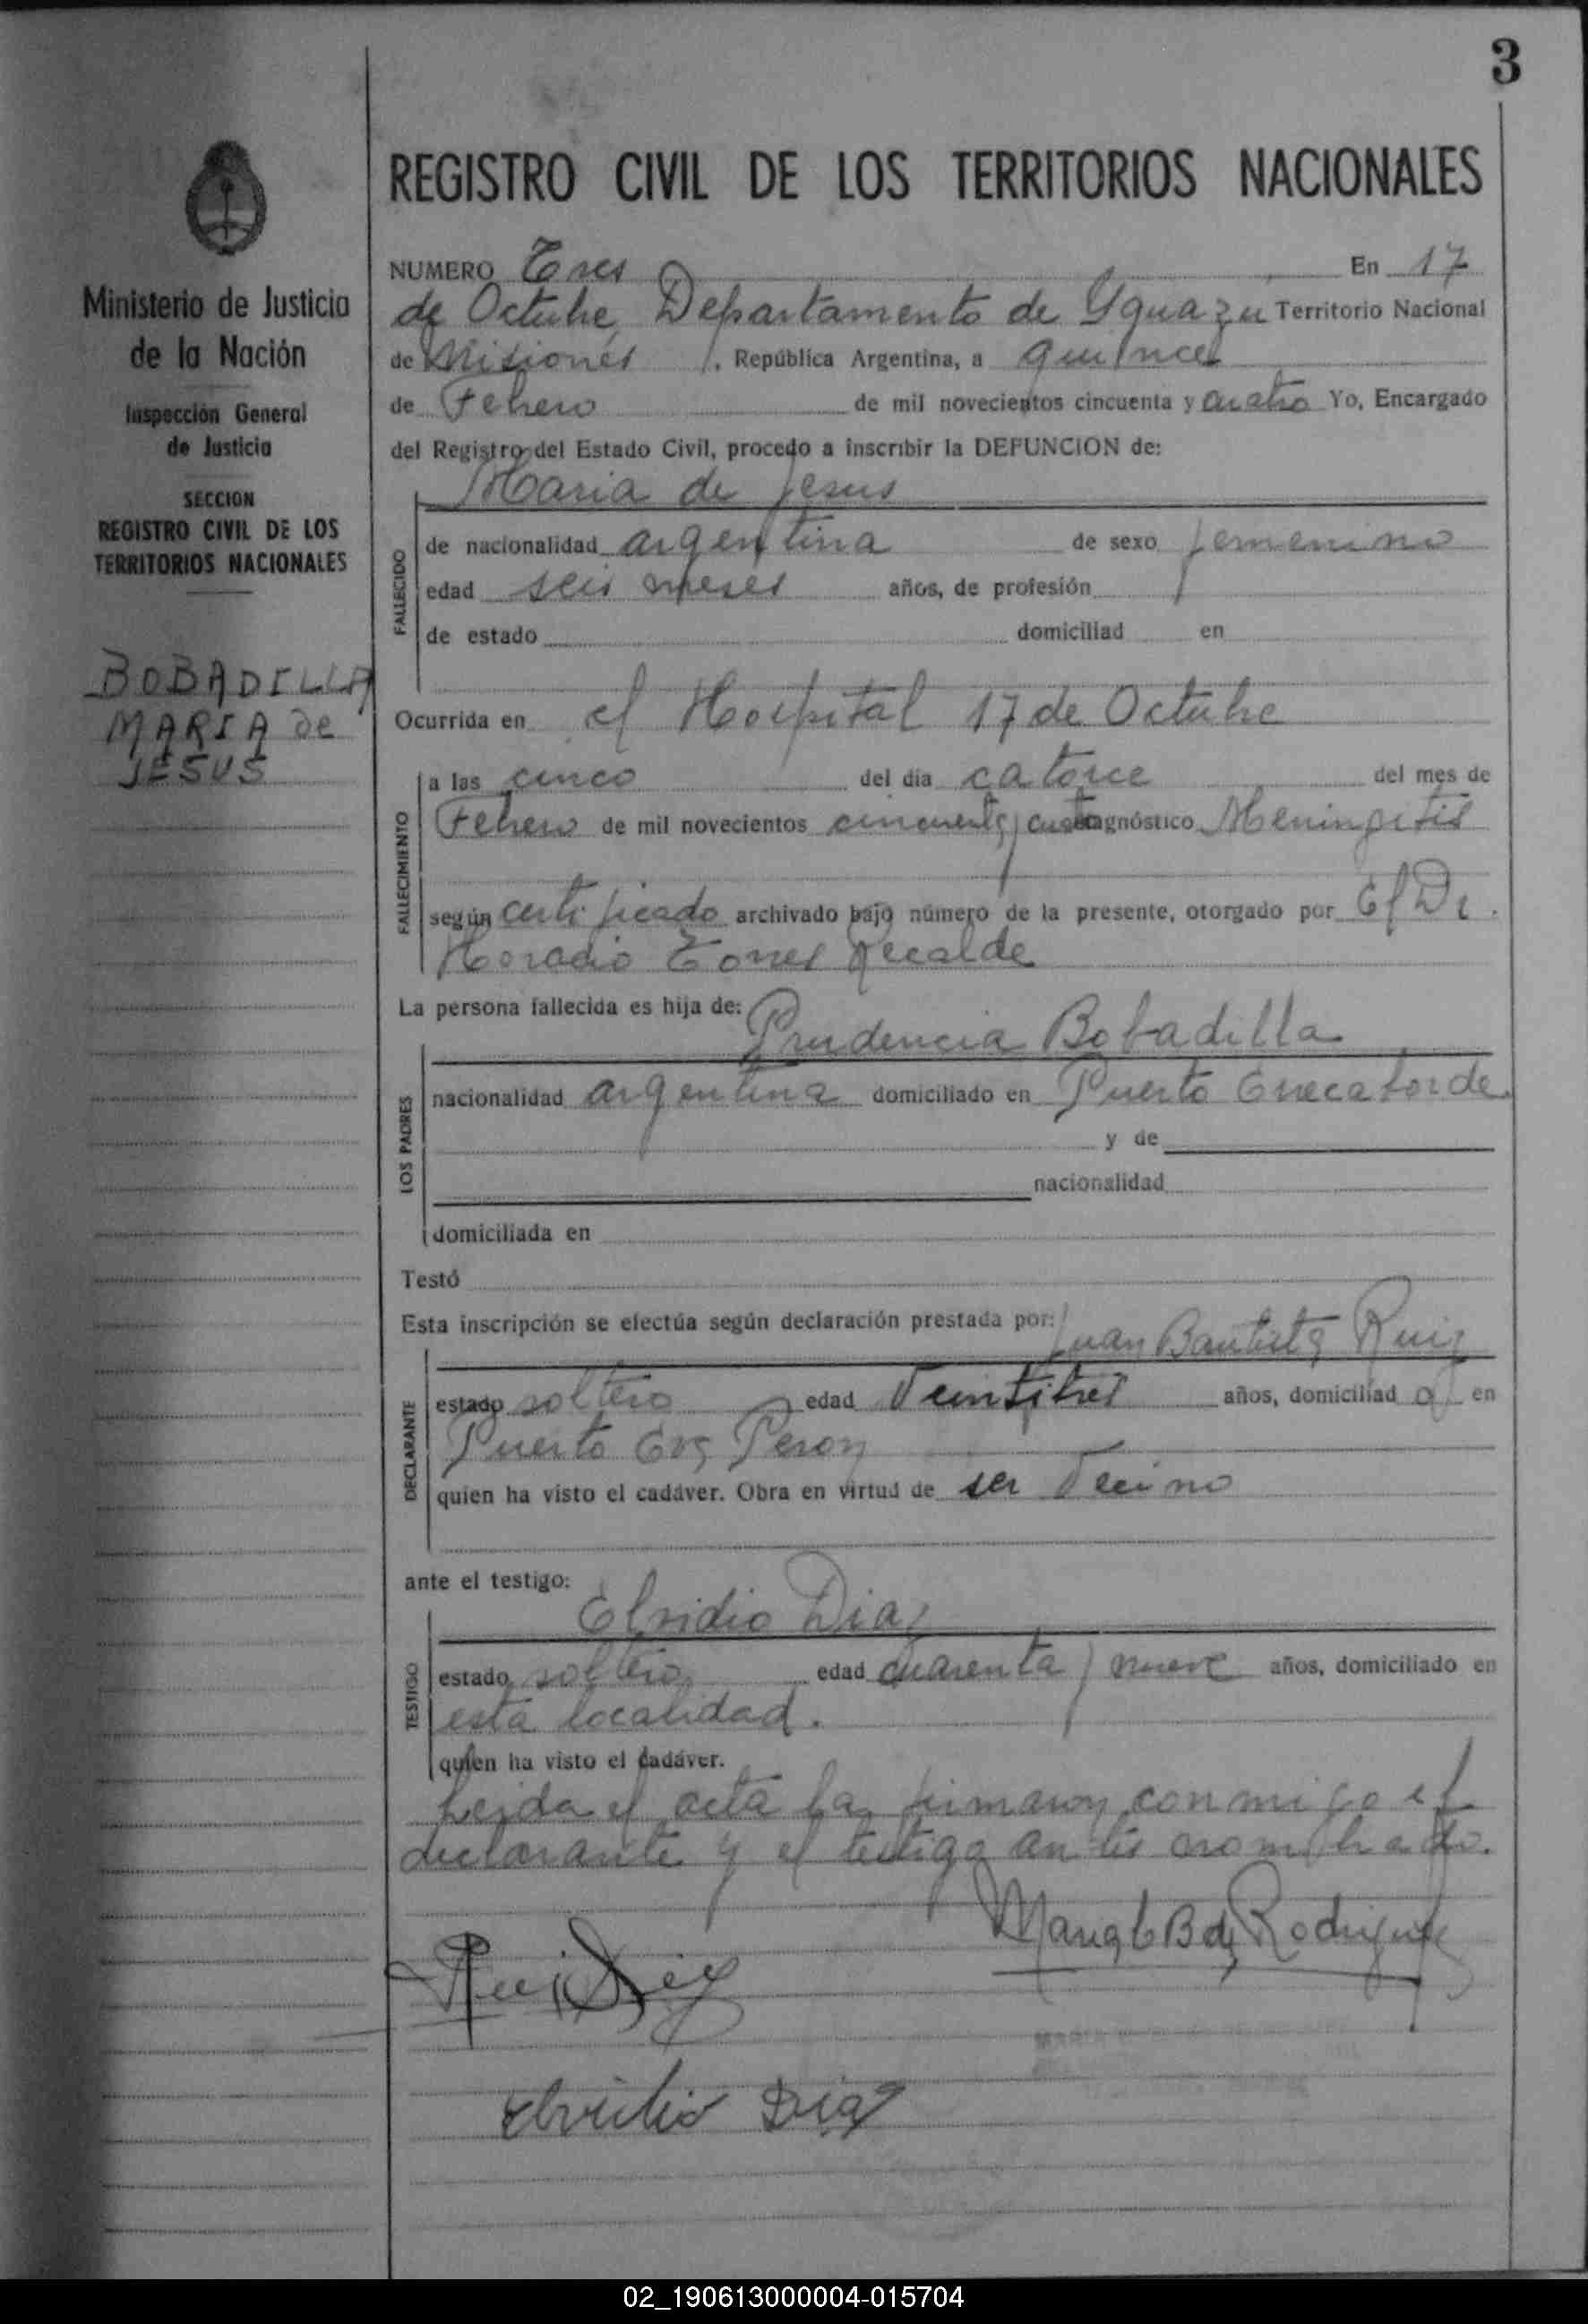 3
REGISTRO CIVIL DE LOS TERRITORIOS NACIONALES
Ministerio de Justicia
de la Nación
Inspección General
de Justicia
SECCION
REGISTRO CIVIL DE LOS
TERRITORIOS NACIONALES
BOBADILLA
MARIA de
JESUS
NUMERO Tres En 17
de Octubre Departamento de Yguazú Territorio Nacional
de Misiones . República Argentina, a quince
de Febrero de mil novecientos cincuenta y cuatro Yo, Encargado
del Registro del Estado Civil, procedo a inscribir la DEFUNCION de:
Maria de Jesus
FALLECIDO
de nacionalidad argentina de sexo femenino
edad seis meses años, de profesión
de estado domiciliad en
Ocurrida en el Hospital 17 de Octubre
FALLECIMIENTO
a las cinco del día catorce del mes de
Febrero de mil novecientos cincuenta y cuatro diagnóstico Meningitis
según certificado archivado bajo número de la presente, otorgado por El Dr.
Horacio Torres Recalde
La persona fallecida es hija de:
Prudencia Bobadilla
LOS PADRES
nacionalidad argentina domiciliado en Puerto
y de
nacionalidad
domiciliada en
Testó
Esta inscripción se efectúa según declaración prestada por:
Juan Bautista Ruiz
DECLARANTE
estado soltero edad Veintitres años, domiciliad o en
Puerto Eva Peron
quien ha visto el cadáver. Obra en virtud de ser Vecino
ante el testigo:
Elvidio Diaz
TESTIGO
estado soltero edad cuarenta y nueve años, domiciliado en
esta localidad.
quien ha visto el cadáver.
Leida el acta la firmaron conmigo el
declarante y el testigo antes nombrado.
Rodriguez
Elvidio Diaz
02_190613000004-015704